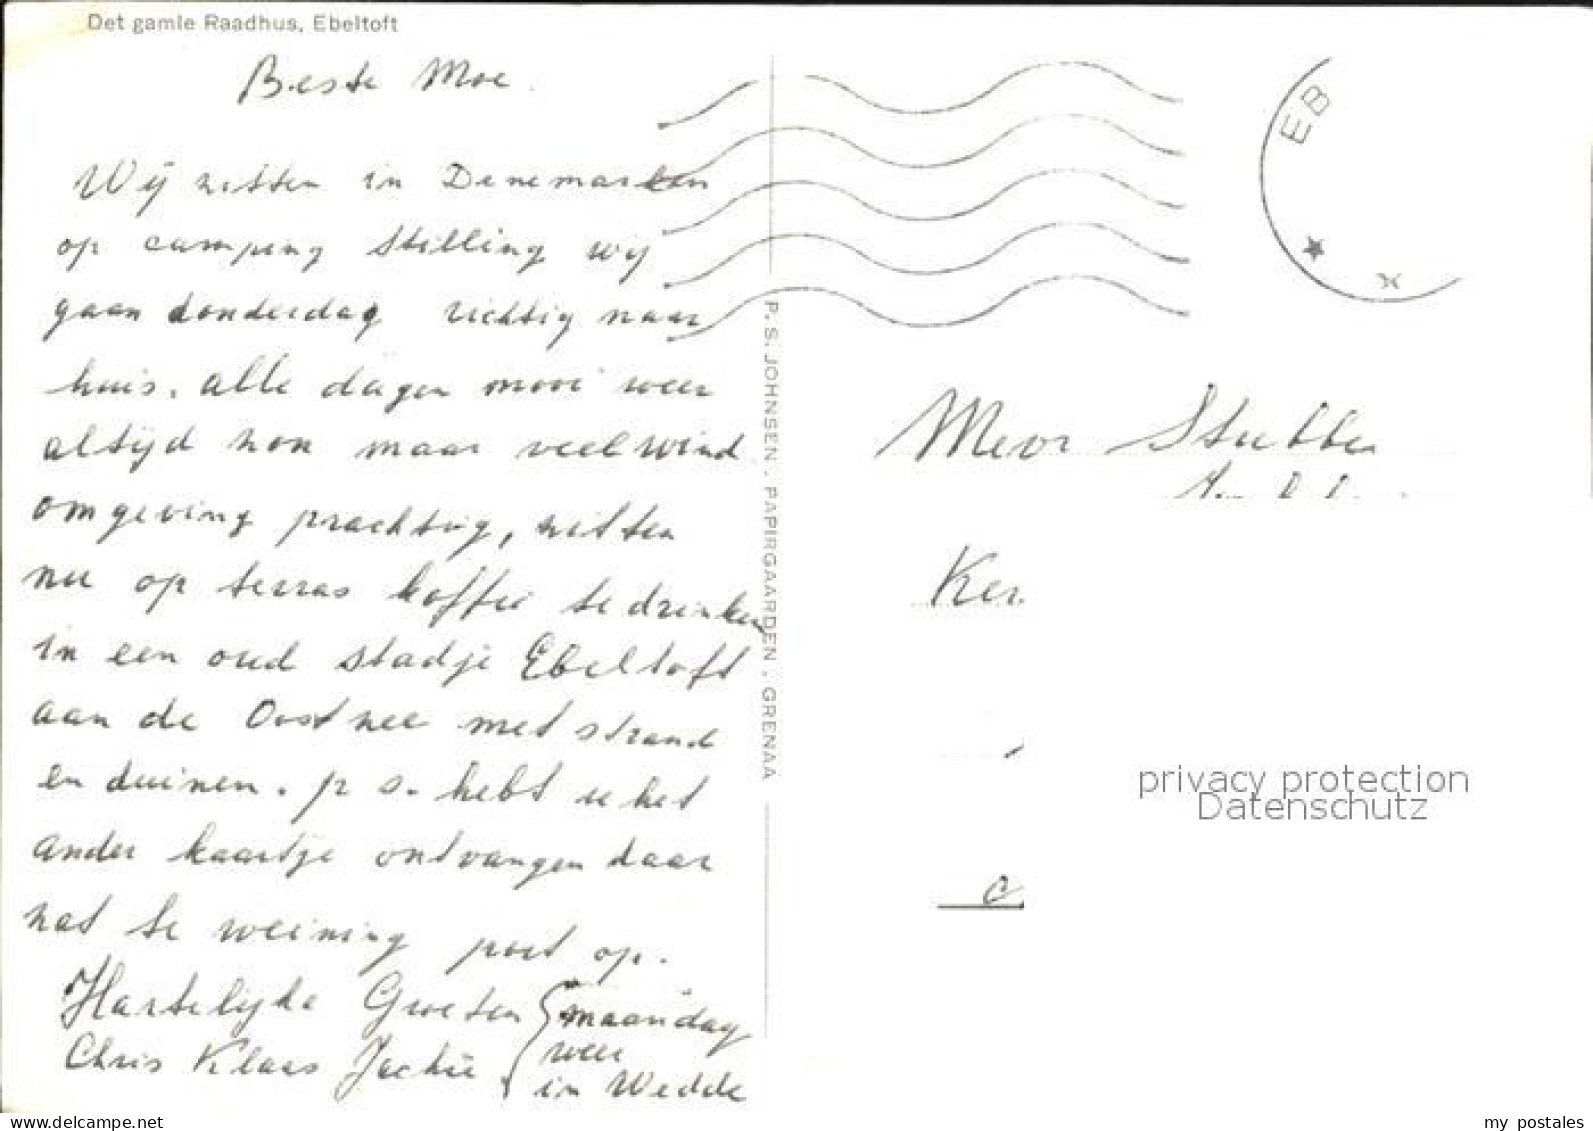 Det gamle Raadhus, Ebeltoft
Beste Moe.
Wij zitten in Denemarken
op camping Stilling wij
gaan donderdag richtig naar
huis. alle dagen mooi weer
altijd zon maar veel wind
omgeving prachtig, zitten
nu op terras koffie te drinken
in een oud stadje Ebeltoft
aan de Oostzee met strand
en duinen. p s. hebt u het
ander kaartje ontvangen daar
zat te weining post op.
Hartelijke Groeten
Chris Klaas Jackie.
maandag
weer
in Wedde
P. S. JOHNSEN. PAPIRGAARDEN. GRENAA
EB
Mevr Stubbe
Ker
privacy protection
Datenschutz
delcampe.net
my_postales